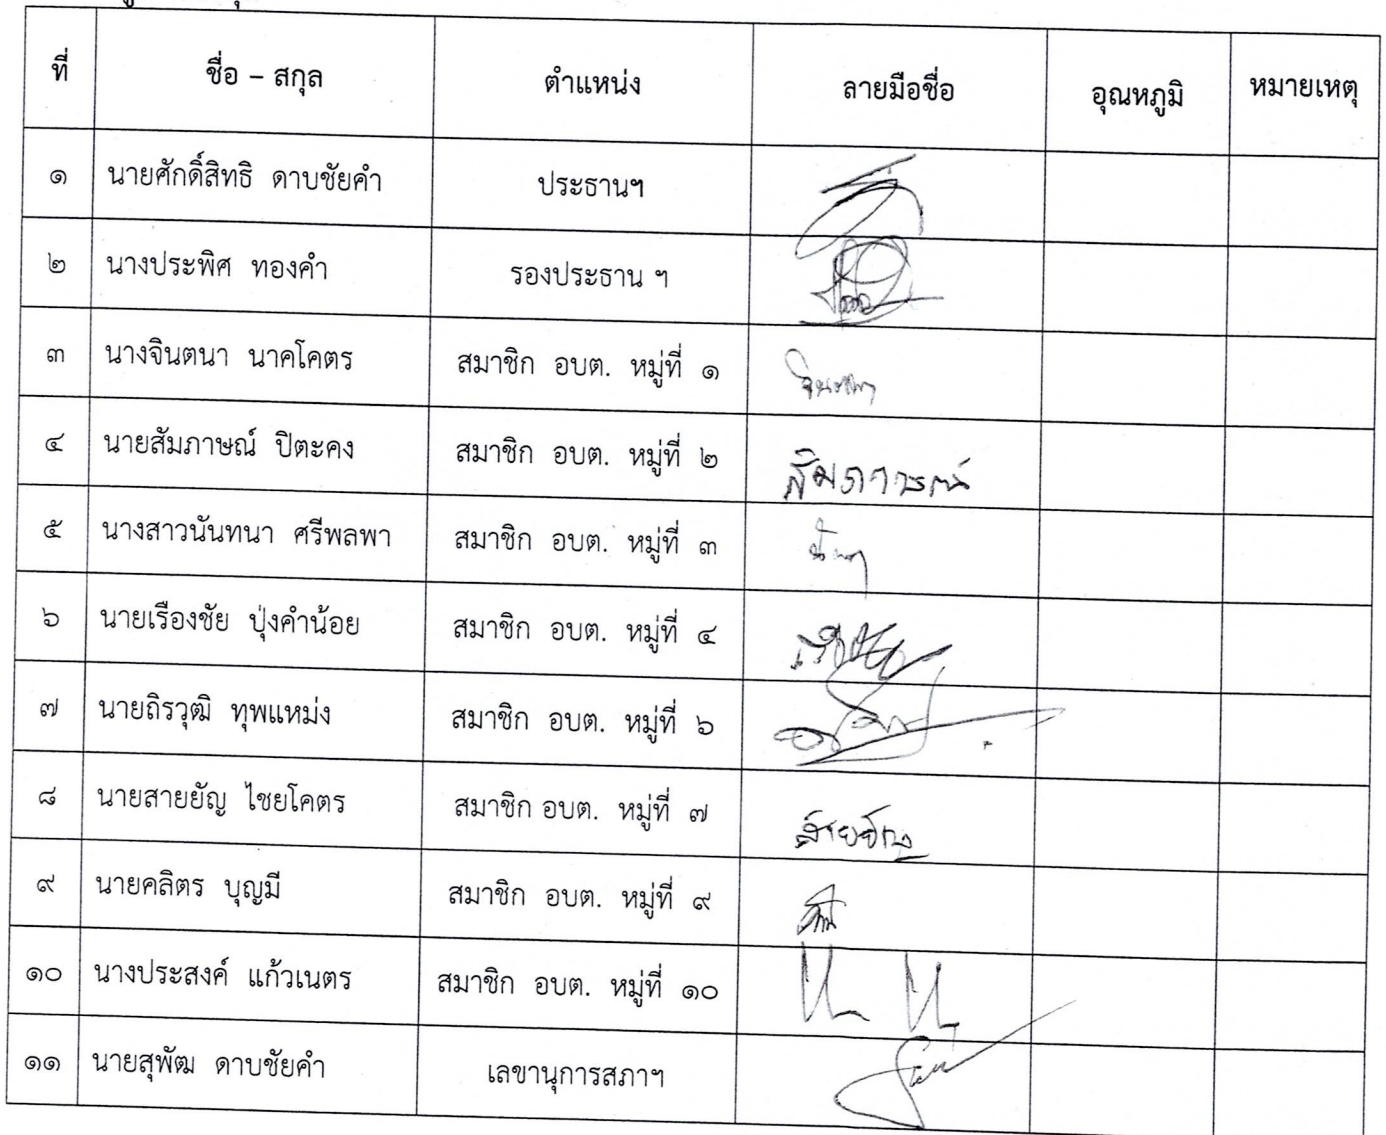 ที่ ชื่อ – สกุล ตำแหน่ง ลายมือชื่อ อุณหภูมิ หมายเหตุ
๑ นายศักดิ์สิทธิ ดาบชัยคำ ประธานฯ
๒ นางประพิศ ทองคำ รองประธาน ฯ
๓ นางจินตนา นาคโคตร สมาชิก อบต. หมู่ที่ ๑ จินตนา
๔ นายสัมภาษณ์ ปิตะคง สมาชิก อบต. หมู่ที่ ๒
๕ นางสาวนันทนา ศรีพลพา สมาชิก อบต. หมู่ที่ ๓
๖ นายเรืองชัย ปุ่งคำน้อย สมาชิก อบต. หมู่ที่ ๔
๗ นายถิรวุฒิ ทุพแหม่ง สมาชิก อบต. หมู่ที่ ๖
๘ นายสายยัญ ไชยโคตร สมาชิก อบต. หมู่ที่ ๗
๙ นายคลิตร บุญมี สมาชิก อบต. หมู่ที่ ๙
๑๐ นางประสงค์ แก้วเนตร สมาชิก อบต. หมู่ที่ ๑๐
๑๑ นายสุพัฒ ดาบชัยคำ เลขานุการสภาฯ